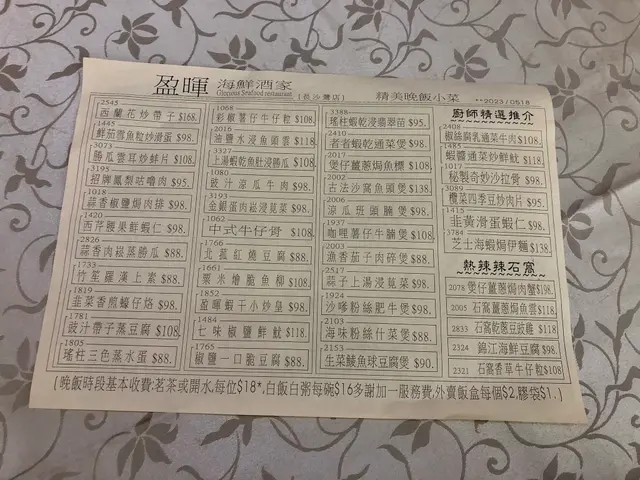 盈暉 海鮮酒家
Glorious Seafood restaurant
(長沙灣店)
精美晚飯小菜
**2023/0518
2545
西蘭花炒帶子$168.
1445
鮮茄雪魚粒炒滑蛋$98.
3073
勝瓜雲耳炒鮮片$108
3195
招牌鳳梨咕嚕肉$95.
1018
蒜香椒鹽焗肉排$98.
1420
西芹腰果鮮蝦仁$98.
2826
蒜香肉崧蒸勝瓜$88.
1733
竹笙羅漢上素$88.
1819
韭菜香煎蠔仔烙$98.
1781
豉汁帶子蒸豆腐$108
1805
瑤柱三色蒸水蛋$88.
1068
彩椒薯仔牛仔粒$108.
2016
油鹽水浸魚頭雲$118
3327
上湯蝦乾魚肚浸勝瓜$108.
1080
豉汁涼瓜牛肉$98.
3193
金銀蛋肉崧浸莧菜$98.
1062
中式牛仔骨$108
1766
北菰紅燒豆腐$88.
1661
粟米燴脆魚柳$108
1852
盈暉蝦干小炒皇$98.
1484
七味椒鹽鮮魷$118.
1765
椒鹽一口脆豆腐$88.
3388
瑤柱蝦乾浸翡翠苗$95.
2410
者者蝦乾通菜煲$98.
2017
煲仔薑蔥焗魚標$108.
2002
古法沙窩魚頭煲$138.
2006
涼瓜班頭腩煲$98.
1937
咖哩薯仔牛腩煲$108
2003
漁香茄子肉碎煲$88.
2517
蒜子上湯浸莧菜$98.
1924
沙嗲粉絲肥牛煲$98.
2103
海味粉絲什菜煲$88.
2153
生菜鯪魚球豆腐煲$90.
廚師精選推介
2408
椒絲腐乳通菜牛肉$108.
1485
蝦醬通菜炒鮮魷$118.
1017
秘製奇妙沙拉骨$98.
3089
欖菜四季豆炒肉片$98.
1415
韭黃滑蛋蝦仁$98.
3784
芝士海蝦焗伊麵$138.
熱辣辣石窩
2078 煲仔薑蔥焗肉蟹$198.
2005 石窩薑蔥焗魚雲$118
2833 石窩乾蔥豆豉雞$118
2324 錦江海鮮豆腐$98.
2321 石窩香草牛仔粒$108
(晚飯時段基本收費:茗茶或開水,每位$18*,白飯白粥每碗$16多謝加一服務費,外賣飯盒每個$2,膠袋$1.)